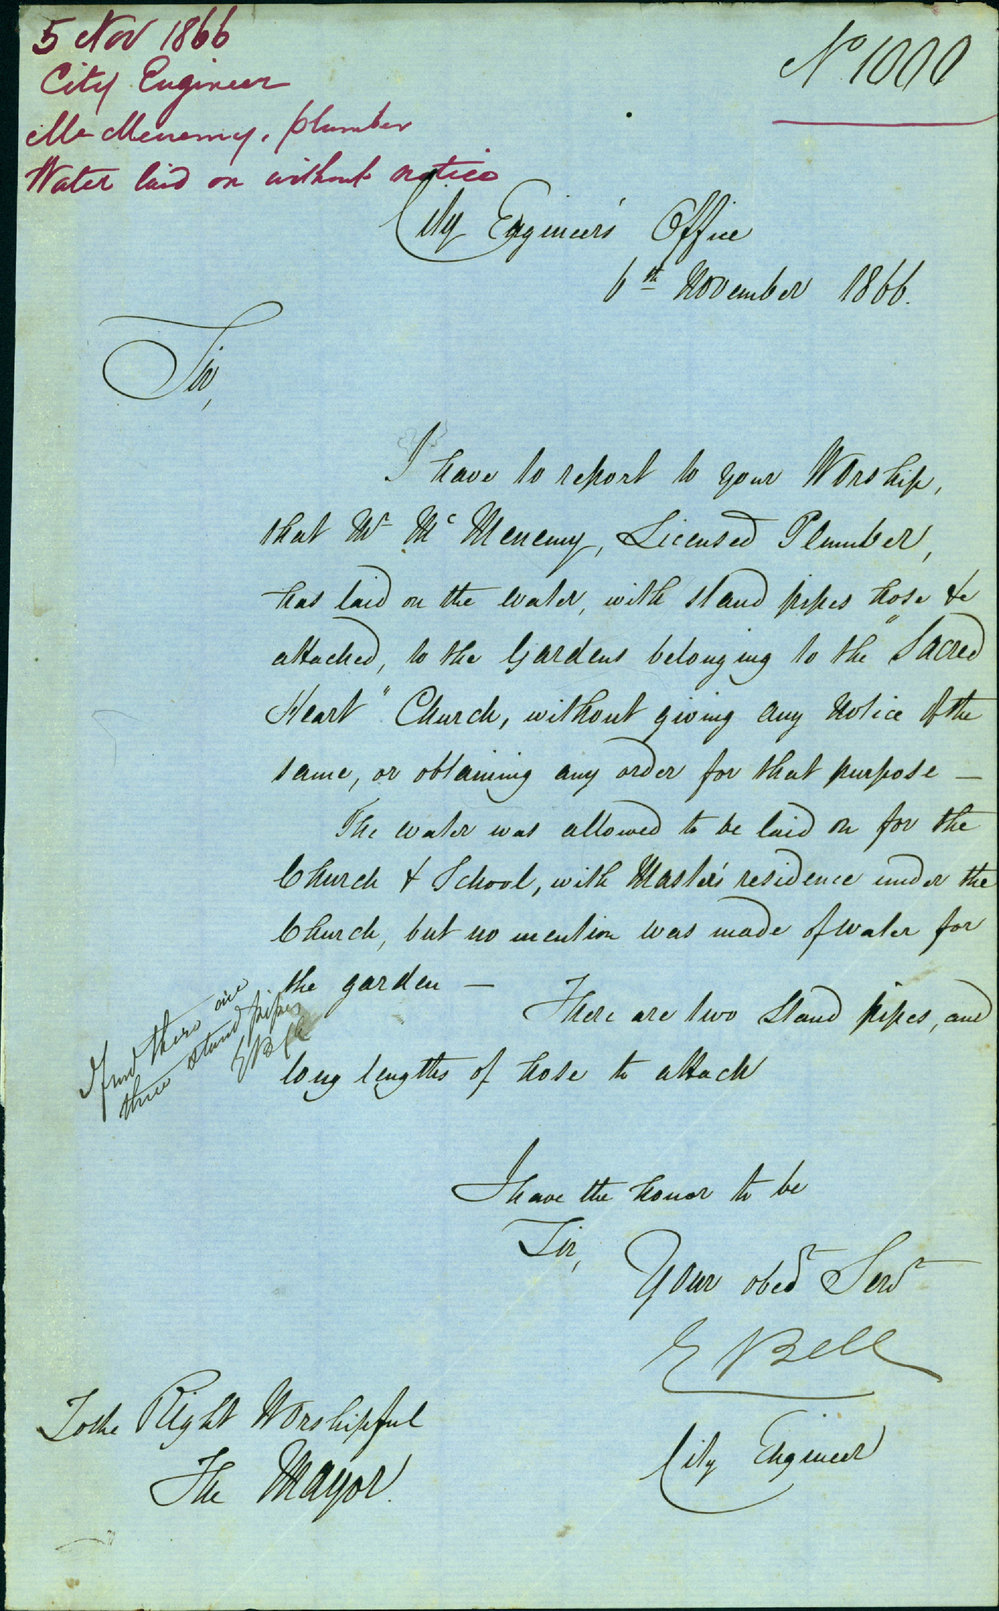 5 Nov 1866
City Engineer
Mc Menemy, plumber
Water laid on without notice
No 1000
City Engineer's Office
6th November 1866.
Sir,
I have to report to your Worship,
that Mr McMenemy, Licensed Plumber,
has laid on the water, with stand pipes hose &c
attached, to the Gardens belonging to the "Sacred
Heart" Church, without giving any notice of the
same, or obtaining any order for that purpose —
The water was allowed to be laid on for the
Church & School, with Master's residence under the
Church, but no mention was made of water for
the garden —
There are two stand pipes, and
long lengths of hose to attach
I find there are
three stand pipes
E Bell
I have the honor to be
Sir,
Your obedt Servt
E Bell
City Engineer
To the Right Worshipful
The Mayor.